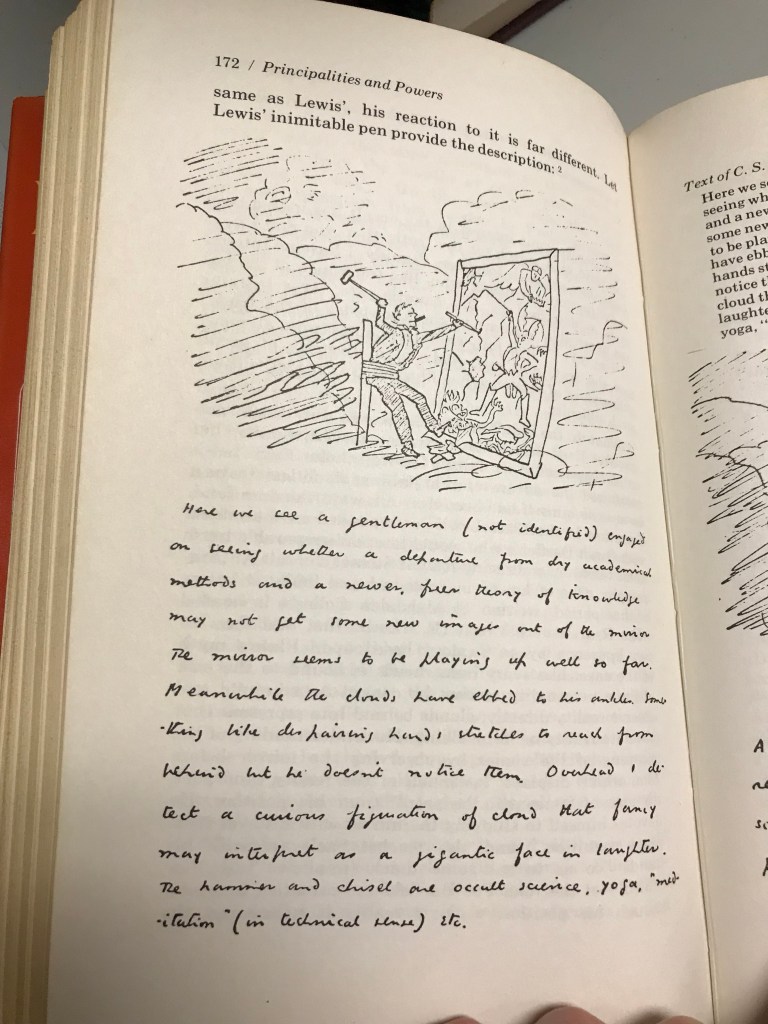 172 / Principalities and Powers
same as Lewis', his reaction to it is far different. Let
Lewis' inimitable pen provide the description: 2
Here we see a gentleman (not identified) engaged
on seeing whether a departure from dry academical
methods and a newer, freer theory of knowledge
may not get some new images out of the mirror
The mirror seems to be playing up well so far.
Meanwhile the clouds have ebbed to his ankles. Some
-thing like despairing hands stretches to reach from
behind but he doesn't notice them. Overhead I de
tect a curious figuration of cloud that fancy
may interpret as a gigantic face in laughter.
The hammer and chisel are occult science, yoga, "med-
-itation" (in technical sense) etc.
Text of C. S.
Here we
seeing
and a
some new
to be
have
hands
notice
cloud
yoga, "
A